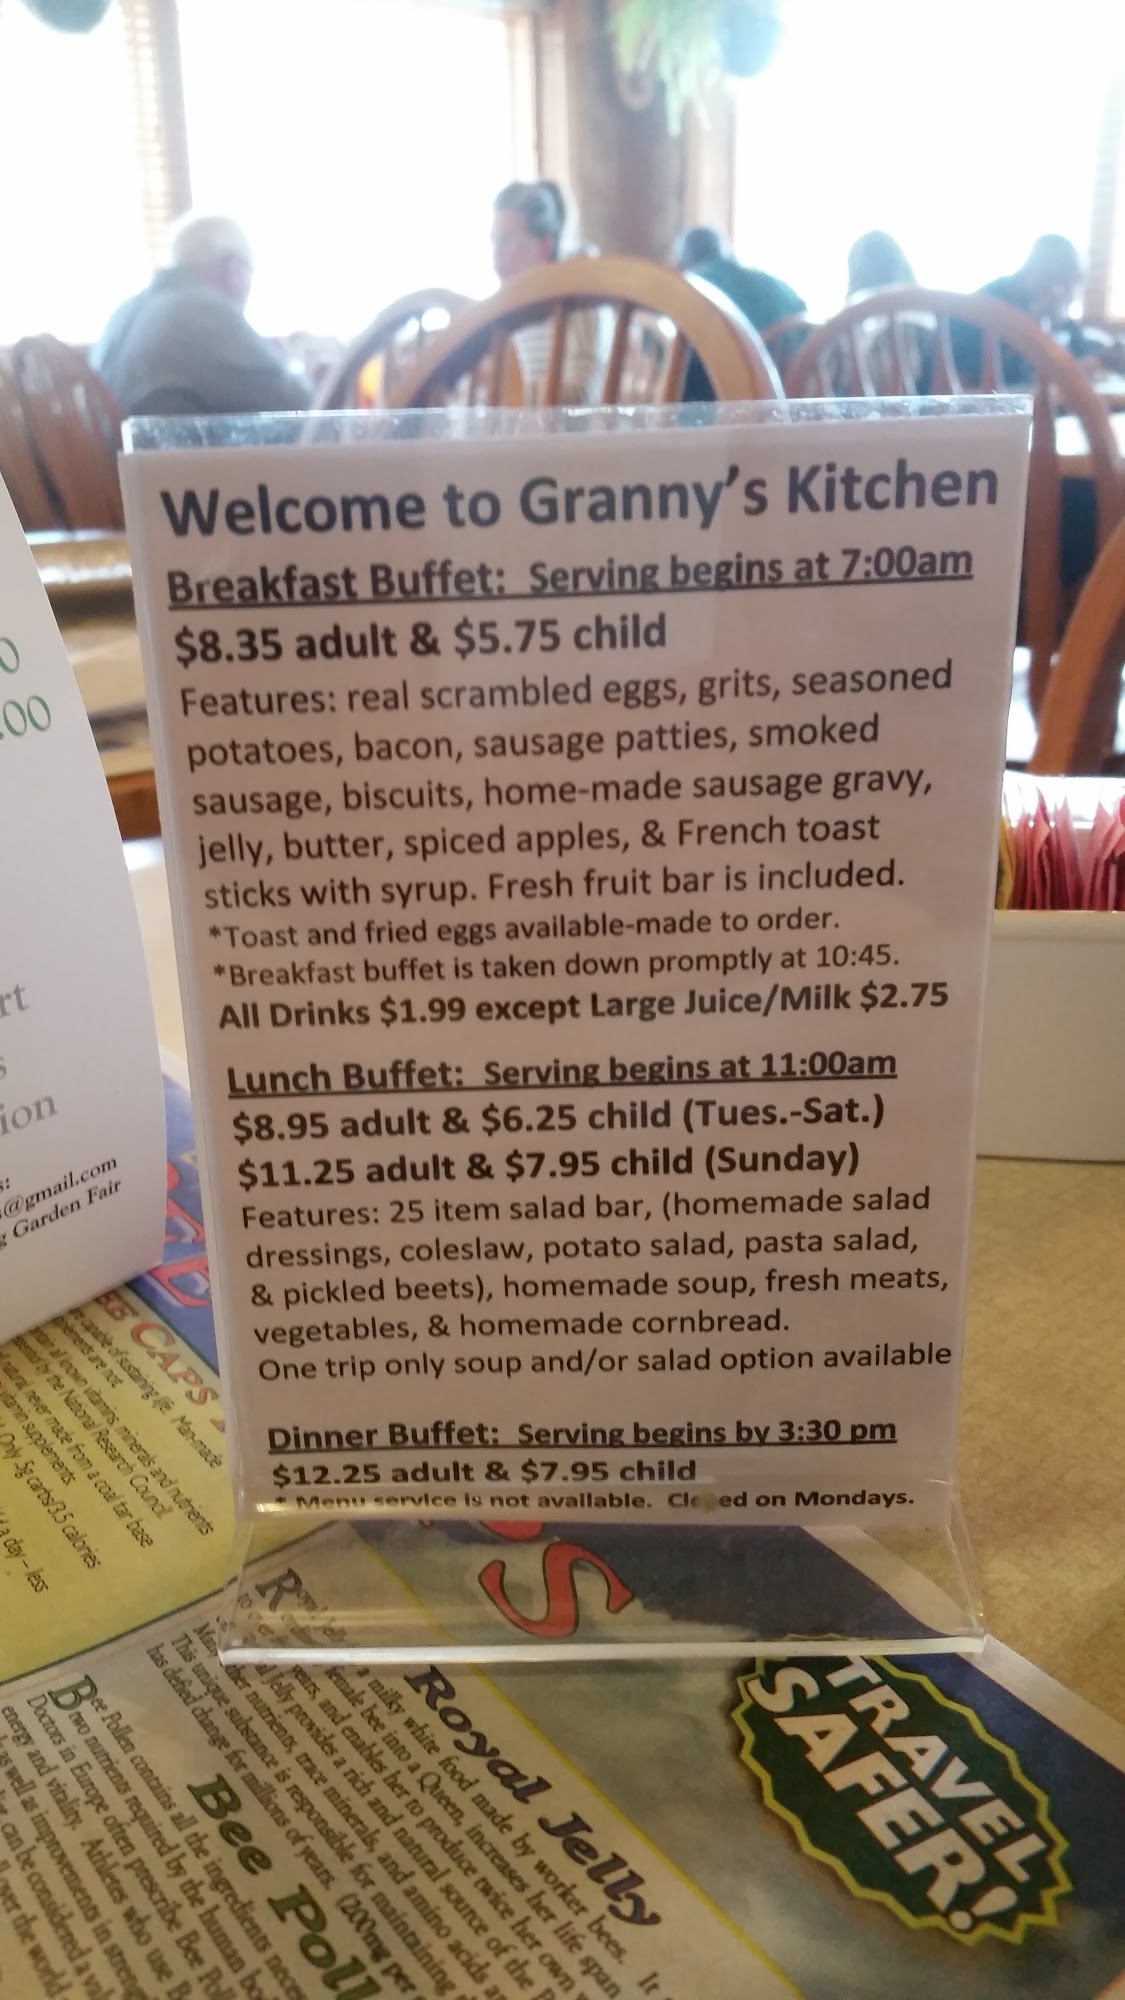 Welcome to Granny's Kitchen
Breakfast Buffet: Serving begins at 7:00am
$8.35 adult & $5.75 child
Features: real scrambled eggs, grits, seasoned
potatoes, bacon, sausage patties, smoked
sausage, biscuits, home-made sausage gravy,
jelly, butter, spiced apples, & French toast
sticks with syrup. Fresh fruit bar is included.
*Toast and fried eggs available-made to order.
*Breakfast buffet is taken down promptly at 10:45.
All Drinks $1.99 except Large Juice/Milk $2.75
Lunch Buffet: Serving begins at 11:00am
$8.95 adult & $6.25 child (Tues.-Sat.)
$11.25 adult & $7.95 child (Sunday)
Features: 25 item salad bar, (homemade salad
dressings, coleslaw, potato salad, pasta salad,
& pickled beets), homemade soup, fresh meats,
vegetables, & homemade cornbread.
One trip only soup and/or salad option available
Dinner Buffet: Serving begins by 3:30 pm
$12.25 adult & $7.95 child
* Menu service is not available. Closed on Mondays.
.00
rt
ion
@gmail.com
Garden Fair
CAPS
capable of sustaining life. Man-made
all known vitamins, minerals and nutrients
by the National Research Council.
never made from a coal tar base
vitamin supplements.
Only 5g carbs/35 calories
a day – less
Royal Jelly
a milky white food made by worker bees. It
female bee into a Queen, increases her life span
years, and enables her to produce twice her own
Jelly provides a rich and natural source of the B
nutrients, trace minerals, and amino acids
This unique substance is responsible for maintaining
has defied change for millions of years. (200mg per
Bee Poll
Bee Pollen contains all the ingredients neces
two nutrients required by the human bod
Doctors in Europe often prescribe Bee Poll
energy and vitality. Athletes who use B
as well as improvements in streng
can be considered a val
over the world
TRAVEL
SAFER!